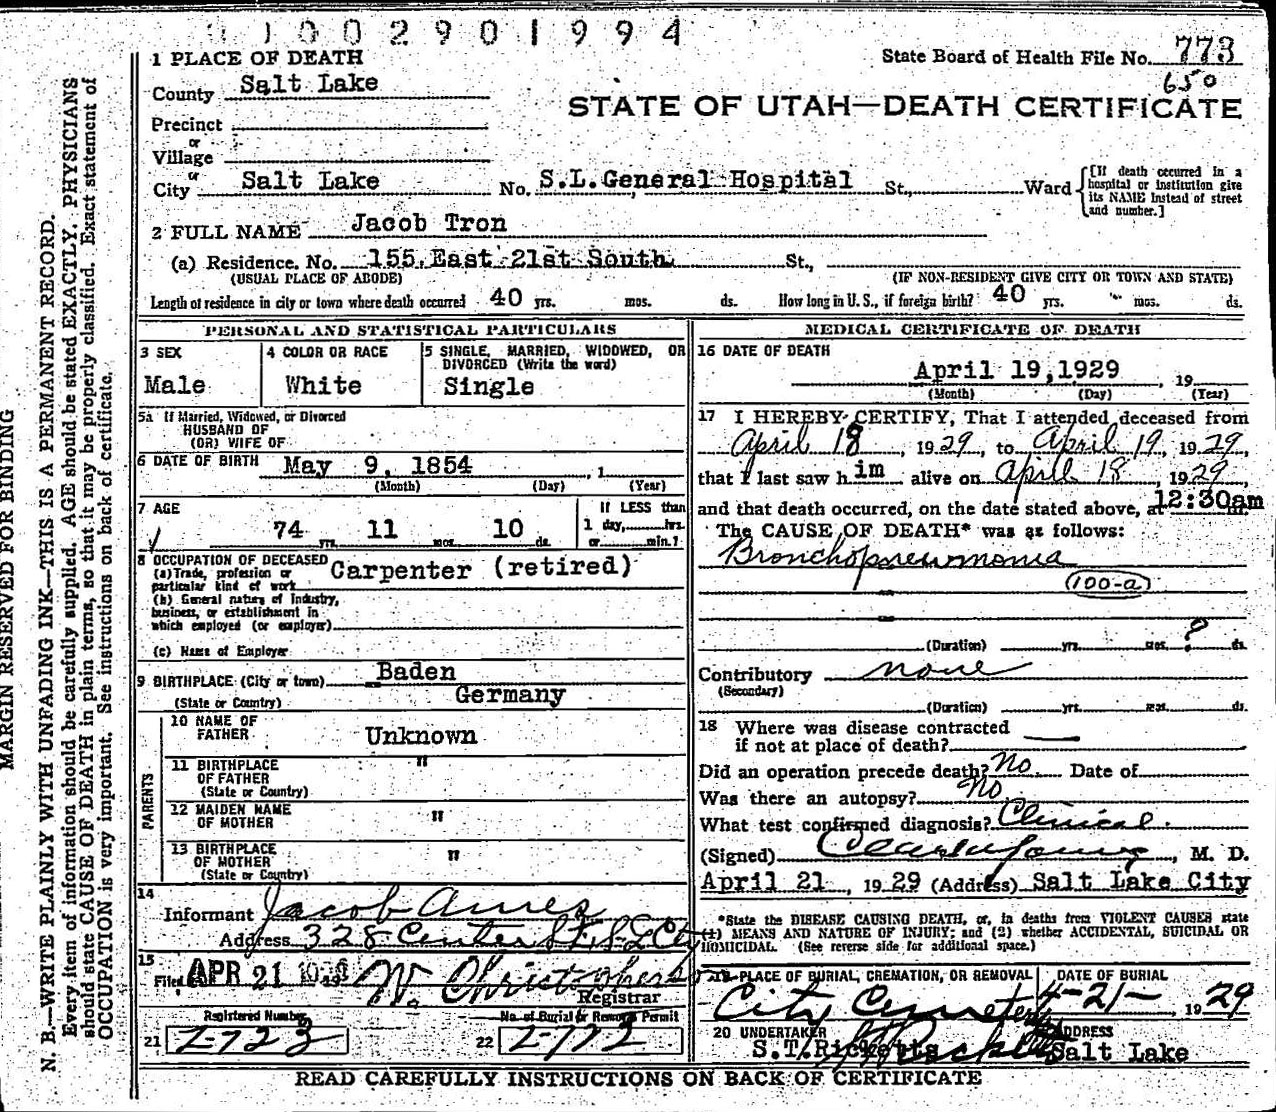 1002901994
1 PLACE OF DEATH
State Board of Health File No. 773
650
County Salt Lake
STATE OF UTAH—DEATH CERTIFICATE
Precinct
or
Village
or
City Salt Lake No. S.L.General Hospital St., Ward
[If death occurred in a
hospital or institution give
its NAME instead of street
and number.]
2 FULL NAME Jacob Tron
(a) Residence. No. 155 East 21st South. St.,
(USUAL PLACE OF ABODE) (IF NON-RESIDENT GIVE CITY OR TOWN AND STATE)
Length of residence in city or town where death occurred 40 yrs. mos. ds. How long in U. S., if foreign birth? 40 yrs. mos. ds.
PERSONAL AND STATISTICAL PARTICULARS
3 SEX
Male
4 COLOR OR RACE
White
5 SINGLE, MARRIED, WIDOWED, OR
DIVORCED (Write the word)
Single
5a If Married, Widowed, or Divorced
HUSBAND OF
(OR) WIFE OF
6 DATE OF BIRTH May 9, 1854 , 1
(Month) (Day) (Year)
7 AGE
74 yrs. 11 mos. 10 ds.
If LESS than
1 day, hrs.
or min.?
8 OCCUPATION OF DECEASED
(a) Trade, profession or
particular kind of work Carpenter (retired)
(b) General nature of Industry,
business, or establishment in
which employed (or employer)
(c) Name of Employer
9 BIRTHPLACE (City or town) Baden
(State or Country) Germany
PARENTS
10 NAME OF
FATHER Unknown
11 BIRTHPLACE
OF FATHER
(State or Country) "
12 MAIDEN NAME
OF MOTHER "
13 BIRTHPLACE
OF MOTHER
(State or Country) "
14
Informant Jacob Ames
Address 328 Center St. S-L City
15
Filed APR 21 1929 W. Christopherson
Registrar
Registered Number
21 Z-723
No. of Burial or Removal Permit
22 Z-772
MEDICAL CERTIFICATE OF DEATH
16 DATE OF DEATH
April 19,1929 , 19
(Month) (Day) (Year)
17 I HEREBY CERTIFY, That I attended deceased from
April 18, 1929, to April 19, 1929,
that I last saw him alive on April 18, 1929,
and that death occurred, on the date stated above, at 12:30am m.
The CAUSE OF DEATH* was as follows:
Bronchopneumonia
(100-a)
(Duration) yrs. mos. ? ds.
Contributory none
(Secondary)
(Duration) yrs. mos. ds.
18 Where was disease contracted
if not at place of death?
Did an operation precede death? No. Date of
Was there an autopsy? No
What test confirmed diagnosis? Clinical.
(Signed) , M. D.
April 21, 1929 (Address) Salt Lake City
*State the DISEASE CAUSING DEATH, or, in deaths from VIOLENT CAUSES state
(1) MEANS AND NATURE OF INJURY; and (2) whether ACCIDENTAL, SUICIDAL OR
HOMICIDAL. (See reverse side for additional space.)
19 PLACE OF BURIAL, CREMATION, OR REMOVAL
City Cemetery
DATE OF BURIAL
4-21-, 1929
20 UNDERTAKER
S.T.Ricketts
ADDRESS
Salt Lake
READ CAREFULLY INSTRUCTIONS ON BACK OF CERTIFICATE
MARGIN RESERVED FOR BINDING
N. B.—WRITE PLAINLY WITH UNFADING INK—THIS IS A PERMANENT RECORD.
Every item of information should be carefully supplied. AGE should be stated EXACTLY. PHYSICIANS
should state CAUSE OF DEATH in plain terms, so that it may be properly classified. Exact statement of
OCCUPATION is very important. See instructions on back of certificate.